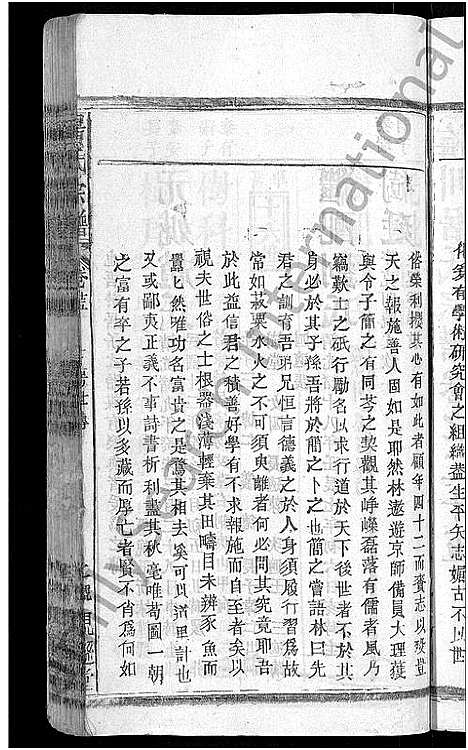 俗榮利攖其心有如此者顧年四十二而賫志以歿豈
天之報施善人固如是耶然林遨遊京師備員大理獲
與令子簡之有同岑之契觀其崢嶸磊落有儒者風乃
竊歎士之砥行勵名以求行道於天下後世者不於其
身必於其子孫吾將於簡之卜之也簡之嘗語林曰先
君之訓育吾弟兄恒言德義之於人身須履行習為故
常如菽粟水火之不可須臾離者何必問其究竟耶吾
於此益信君之積善好學有不求報施而自至者矣以
視夫世俗之士根器淺薄輕棄其田疇目未辨豕魚而
囂囂然唯功名富貴之是鶩其相去奚可以道里計也
又或鄙夷正義不事詩書析利盡其秋毫唯苟圖一朝
之富有卒之子若孫以多藏而厚亡者賢不肖為何如
俗矣有學術研究會之組織蓋生平矢志媚古不以世
氏宗譜
illysugaron International